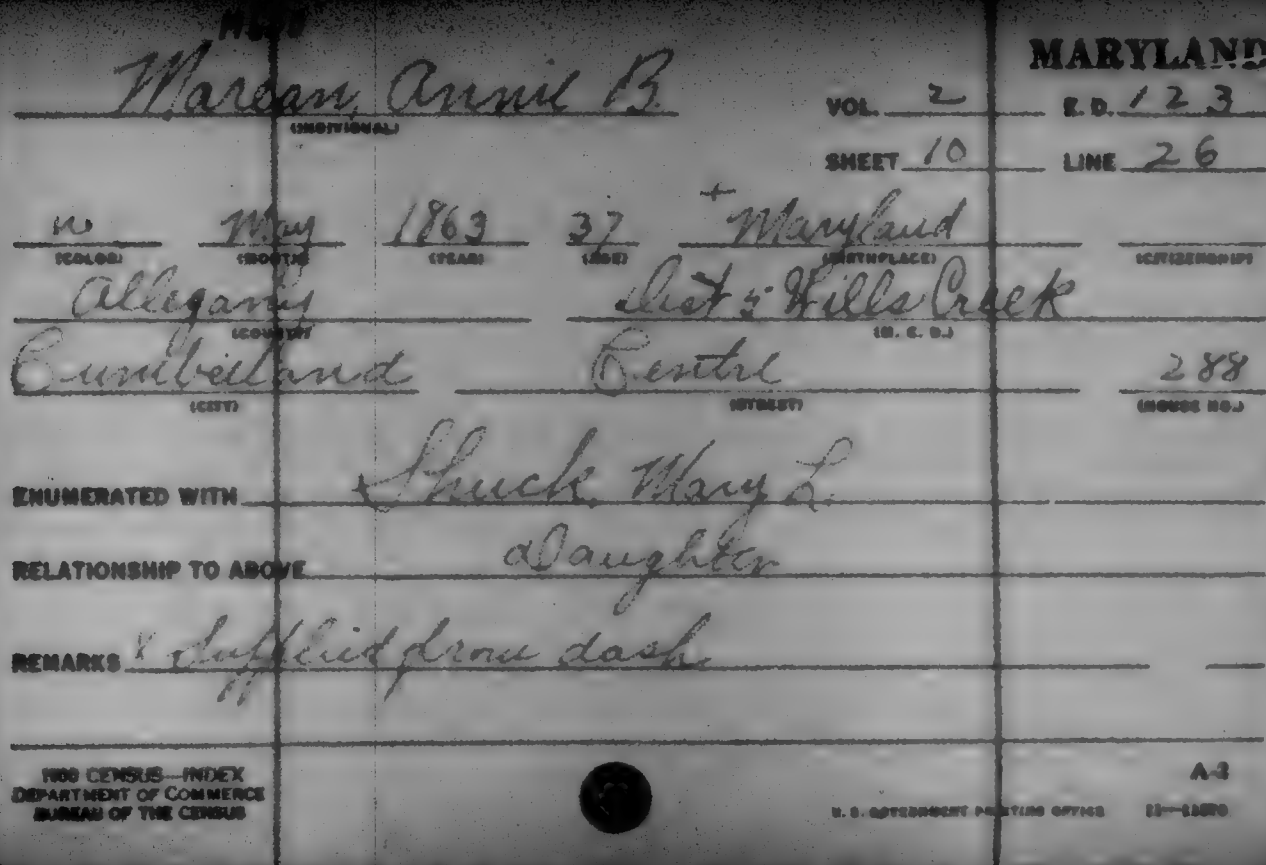 MARYLAND
Marean, Annie B.
(INDIVIDUAL)
VOL. 2 E. D. 123
SHEET 10 LINE 26
w May 1863 37 + Maryland
(COLOR) (MONTH) (YEAR) (AGE) (BIRTHPLACE) (CITIZENSHIP)
Allegany Dist 5 Wills Creek
(COUNTY) (M. C. D.)
Cumberland Centre 288
(CITY) (STREET) (HOUSE NO.)
ENUMERATED WITH Shuck, Mary L.
RELATIONSHIP TO ABOVE Daughter
REMARKS Supplied from dash
1900 CENSUS—INDEX
DEPARTMENT OF COMMERCE
BUREAU OF THE CENSUS
A-2
U. S. GOVERNMENT PRINTING OFFICE